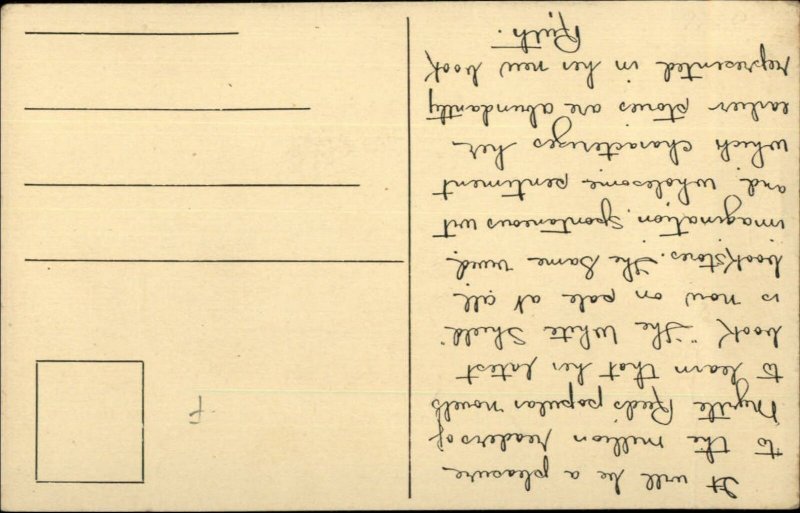 It will be a pleasure
to the million readers of
Myrtle Reed's popular novels
to learn that her latest
book "The White Shield"
is now on sale at all
bookstores. The same vivid
imagination, spontaneous wit
and wholesome sentiment
which characterizes her
earlier stories are abundantly
represented in her new book
Ruth.
F